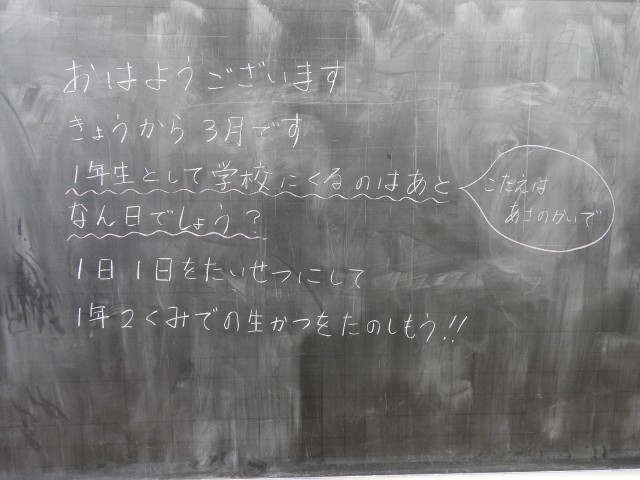 おはようございます
きょうから3月です
1年生として学校にくるのはあと
なん日でしょう?
こたえは
あさのかいで
1日1日をたいせつにして
1年2くみでの生かつをたのしもう!!